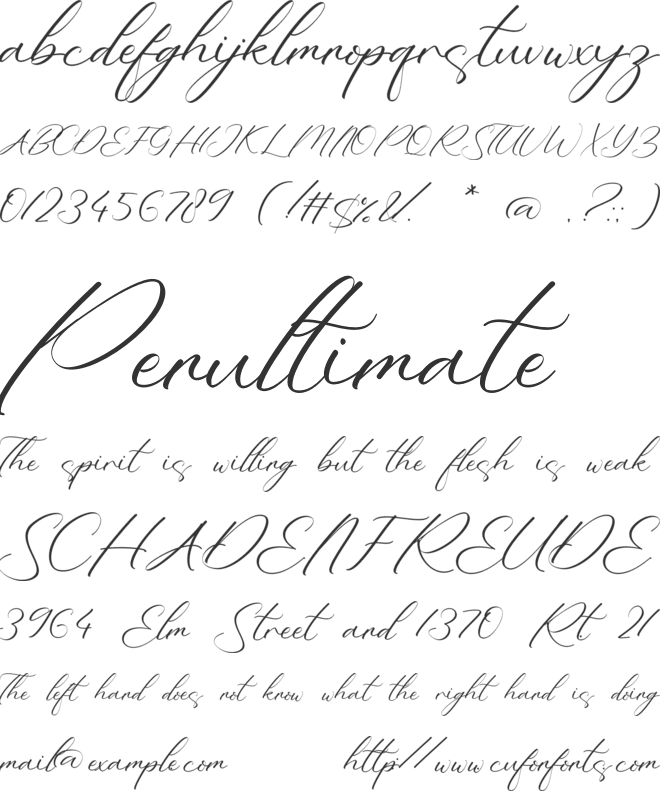 abcdefghijklmnopqrstuvwxyz
ABCDEFGHIJKLMNOPQRSTUVWXYZ
0123456789 (!#$%&. * @ .?:;)
Penultimate
The spirit is willing but the flesh is weak
SCHADENFREUDE
3964 Elm Street and 1370 Rt 21
The left hand does not know what the right hand is doing
mail@example.com http//www.cufonfonts.com